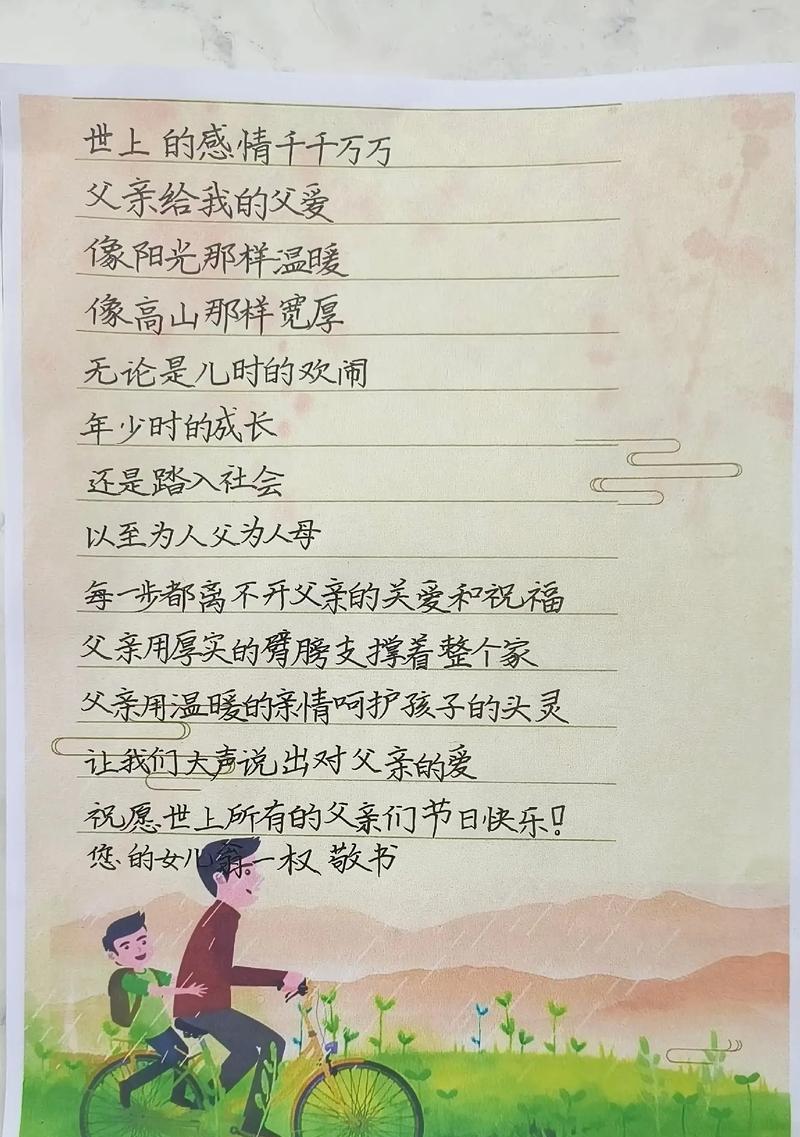 世上的感情千千万万
父亲给我的父爱
像阳光那样温暖
像高山那样宽厚
无论是儿时的欢闹
年少时的成长
还是踏入社会
以至为人父为人母
每一步都离不开父亲的关爱和祝福
父亲用厚实的臂膀支撑着整个家
父亲用温暖的亲情呵护孩子的头灵
让我们大声说出对父亲的爱
祝愿世上所有的父亲们节日快乐!
您的女儿翁一权 敬书